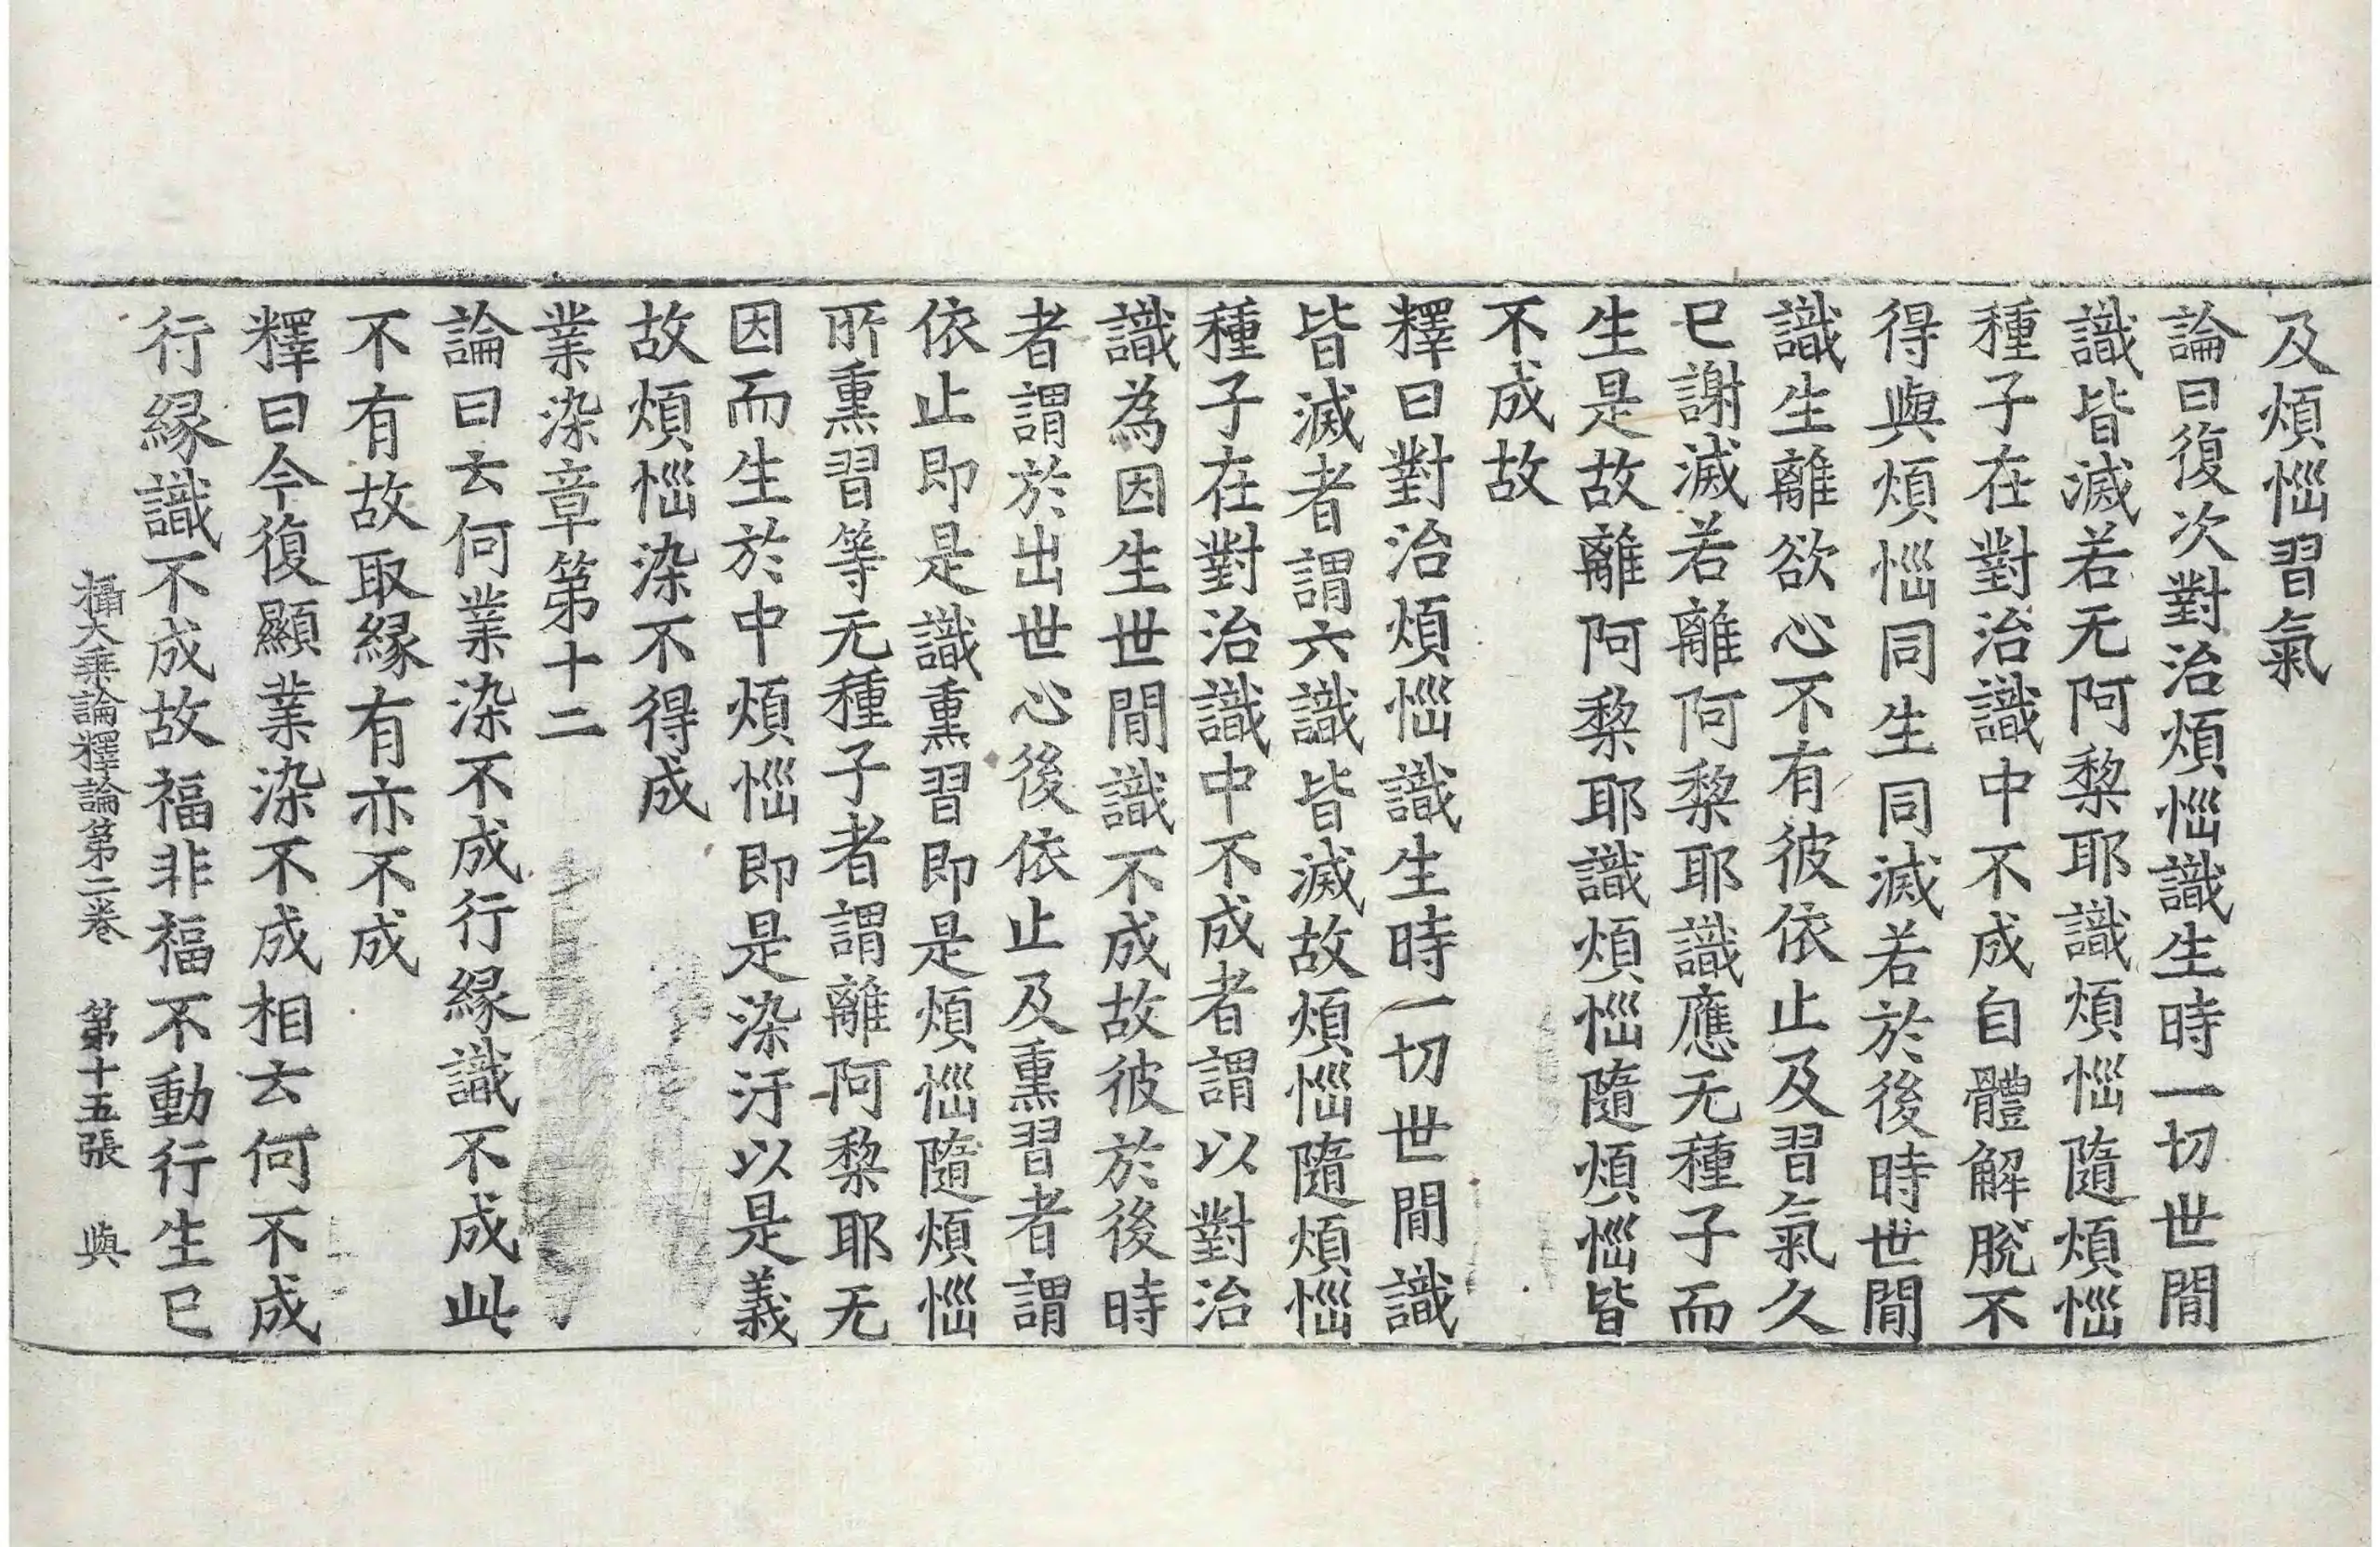 及煩惱習氣
論曰復次對治煩惱識生時一切世間
識皆滅若无阿黎耶識煩惱隨煩惱
種子在對治識中不成自體解脫不
得與煩惱同生同滅若於後時世間
識生離欲心不有彼依止及習氣久
已謝滅若離阿黎耶識應无種子而
生是故離阿黎耶識煩惱隨煩惱皆
不成故
釋曰對治煩惱識生時一切世間識
皆滅者謂六識皆滅故煩惱隨煩惱
種子在對治識中不成者謂以對治
識為因生世間識不成故彼於後時
者謂於出世心後依止及熏習者謂
依止即是識熏習即是煩惱隨煩惱
所熏習等无種子者謂離阿黎耶无
因而生於中煩惱即是染汙以是義
故煩惱染不得成
業染章第十二
論曰云何業染不成行緣識不成此
不有故取緣有亦不成
釋曰今復顯業染不成相云何不成
行緣識不成故福非福不動行生已
攝大乘論釋論第二卷 第十五張 與